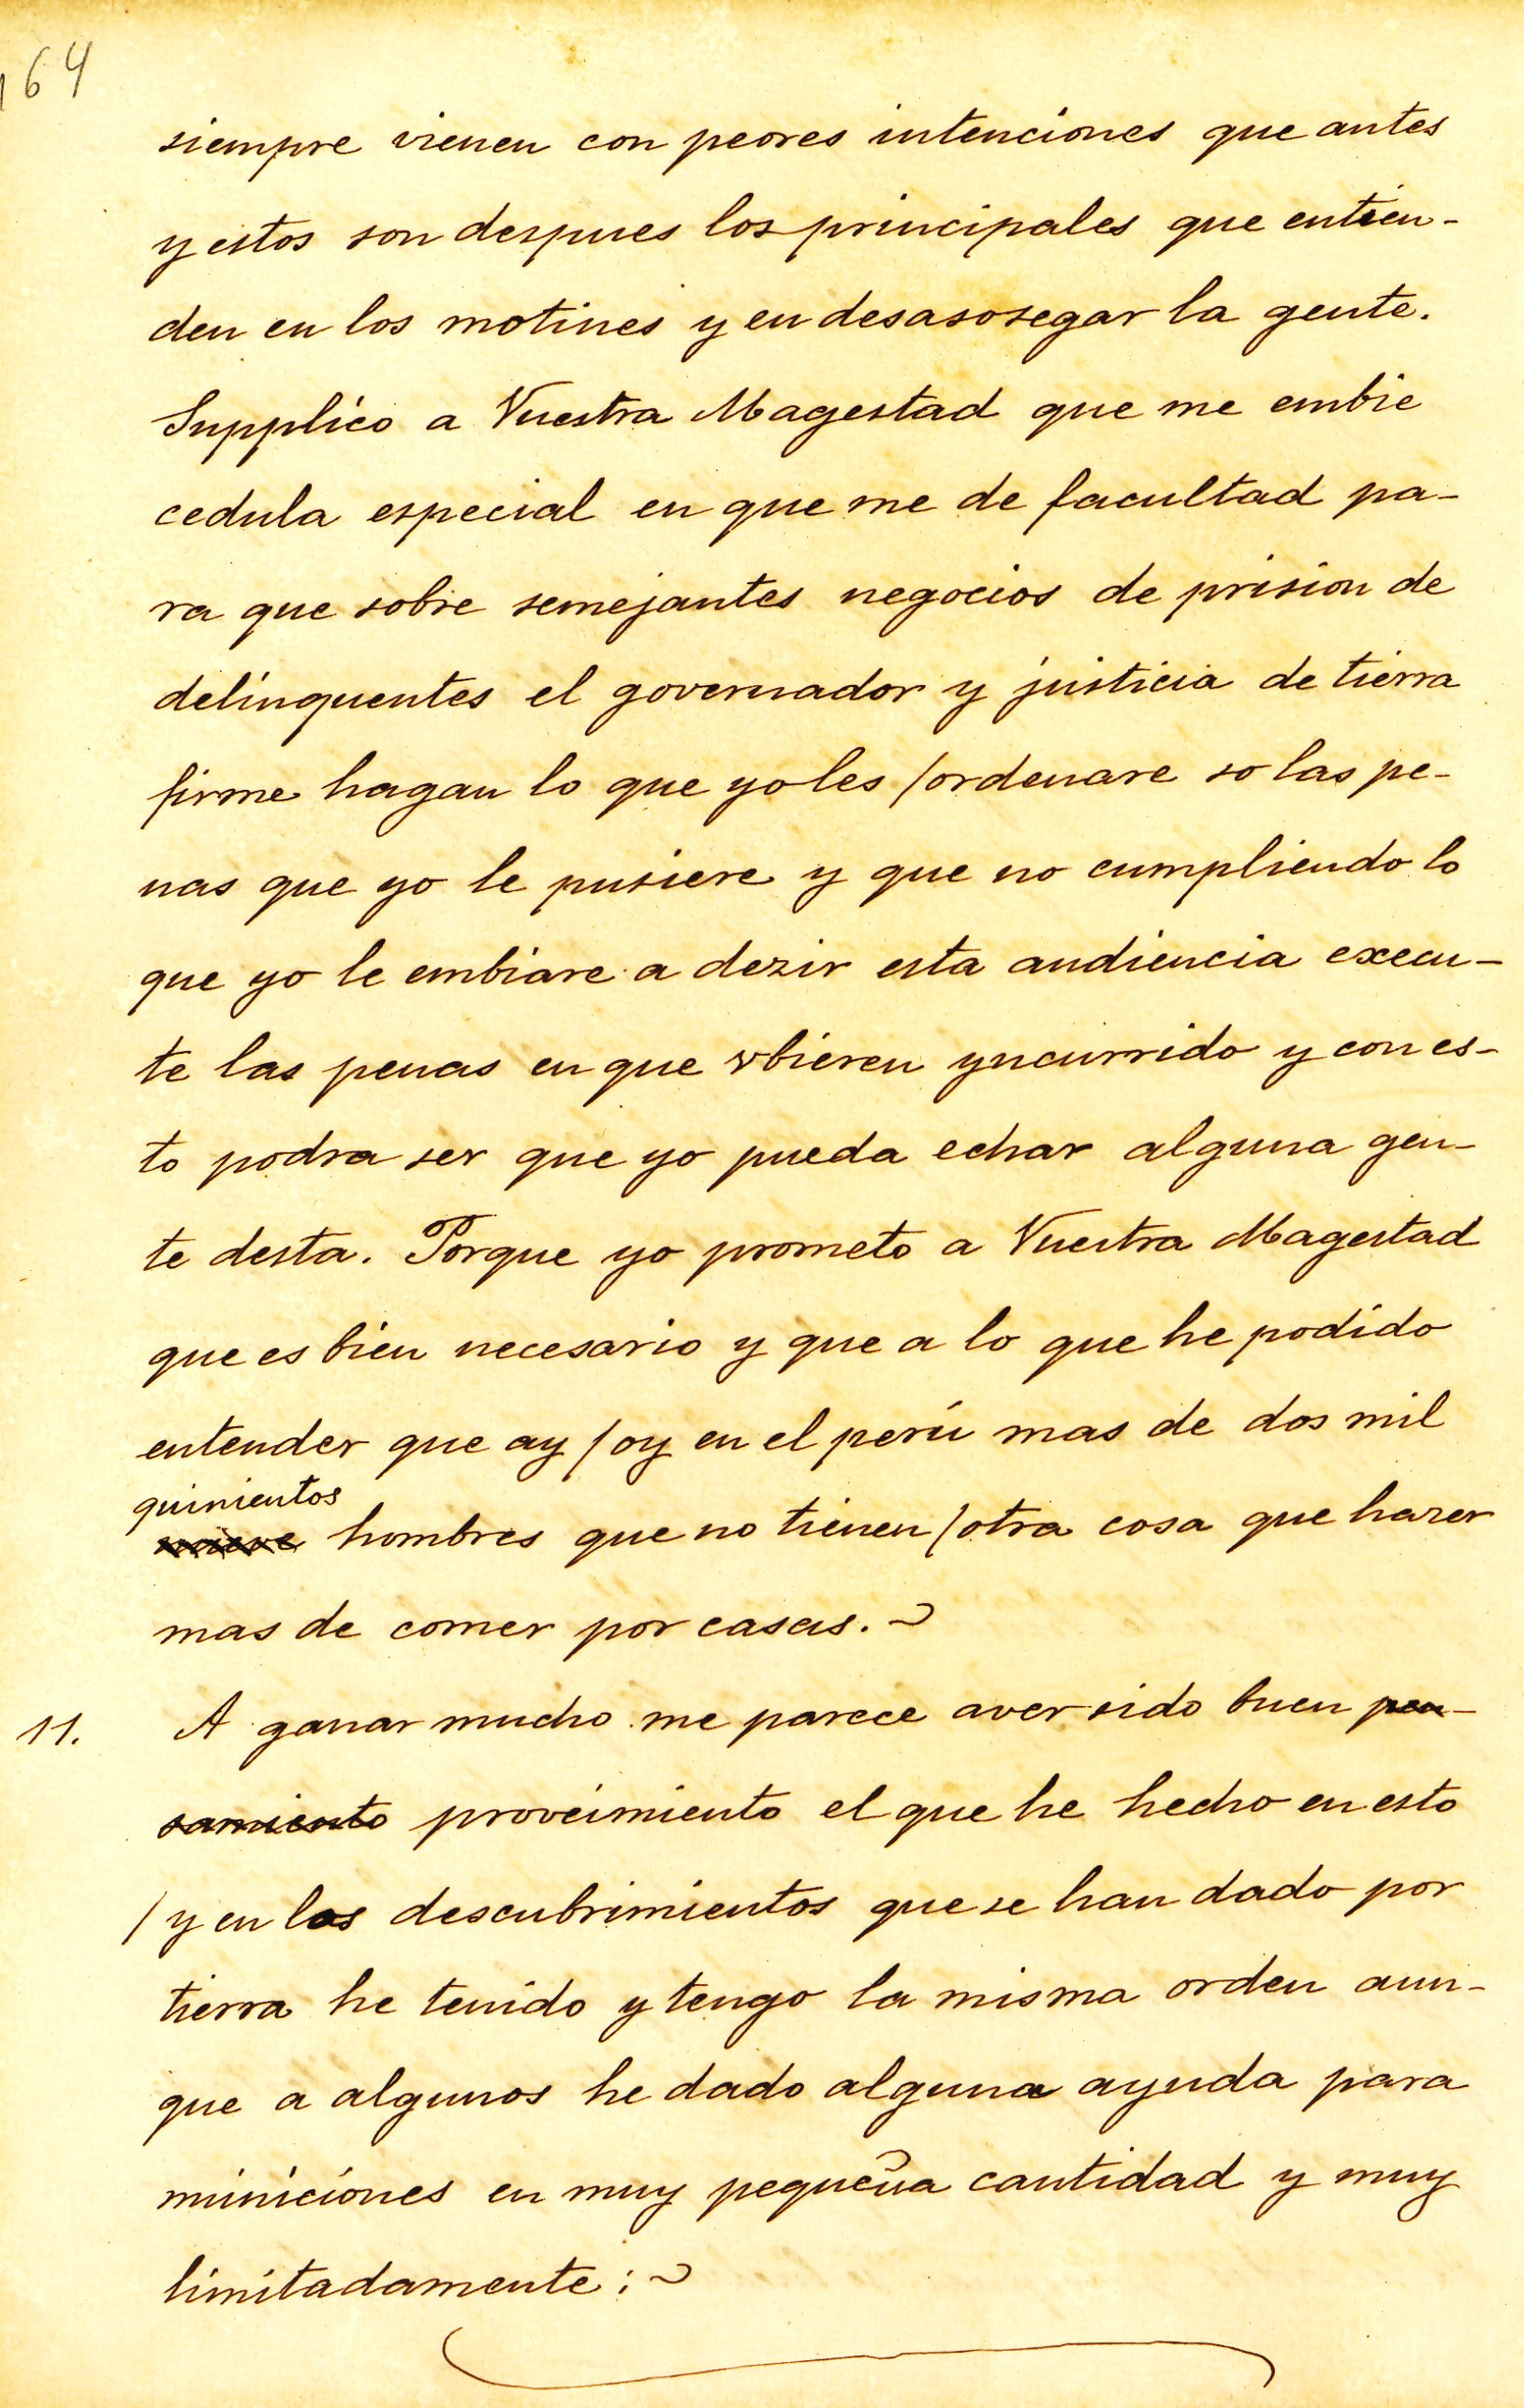 164
siempre vienen con peores intenciones que antes
y estos son despues los principales que entien-
den en los motines y en desasosegar la gente.
Supplico a Vuestra Magestad que me embie
cedula especial en que me de facultad pa-
ra que sobre semejantes negocios de prision de
delinquentes el governador y justicia de tierra
firme hagan lo que yo les /ordenare so las pe-
nas que yo le pusiere y que no cumpliendo lo
que yo le embiare a dezir esta audiencia execu-
te las penas en que vbieren yncurrido y con es-
to podra ser que yo pueda echar alguna gen-
te desta. Porque yo prometo a Vuestra Magestad
que es bien necesario y que a lo que he podido
entender que ay /oy en el perú mas de dos mil
quinientos
hombres que no tienen /otra cosa que hazer
mas de comer por casas.
11. A ganar mucho me parece aver sido buen pen-
samiento proveimiento el que he hecho en esto
/y en los descubrimientos que se han dado por
tierra he tenido y tengo la misma orden aun-
que a algunos he dado alguna ayuda para
municiones en muy pequeña cantidad y muy
limitadamente: